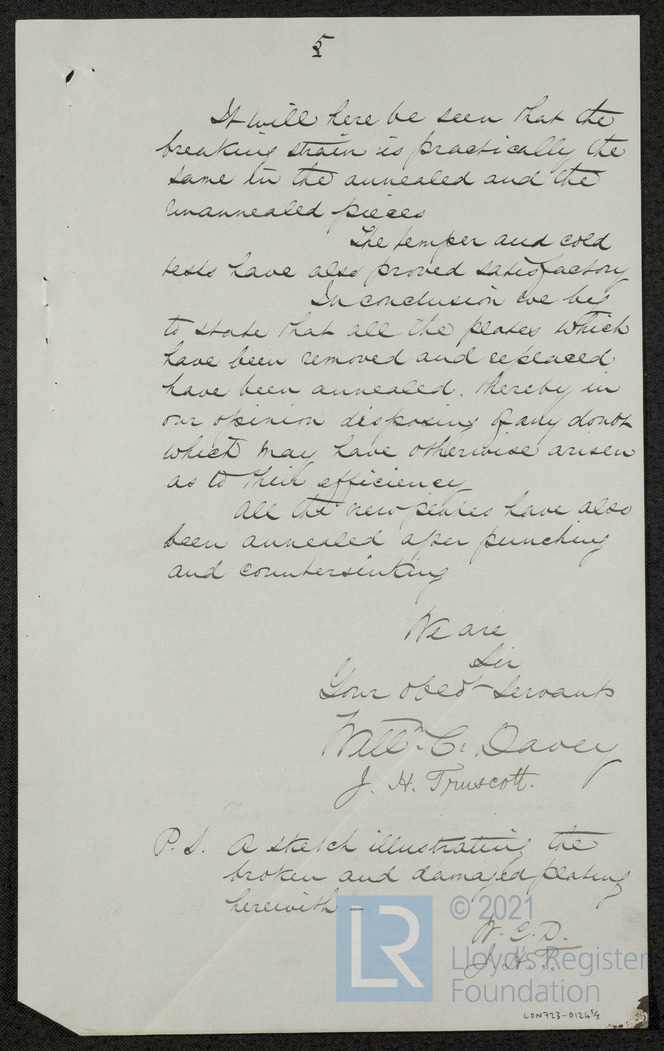 5
It will here be seen that the
breaking strain is practically the
same in the annealed and the
unannealed pieces
The temper and cold
tests have also proved satisfactory
In conclusion we beg
to state that all the plates which
have been removed and replaced
have been annealed, thereby in
our opinion disposing of any doubt
which may have otherwise arisen
as to their efficiency
All the new plates have also
been annealed after punching
and countersinking
We are
Sir
Your obedt Servants
Willm. C. Davey
J. H. Truscott.
P.S. A sketch illustrating the
broken and damaged plating
herewith –
W. C. D.
J. H. T.
LR
© 2021
Lloyd's Register
Foundation
LON723-0124 5/5